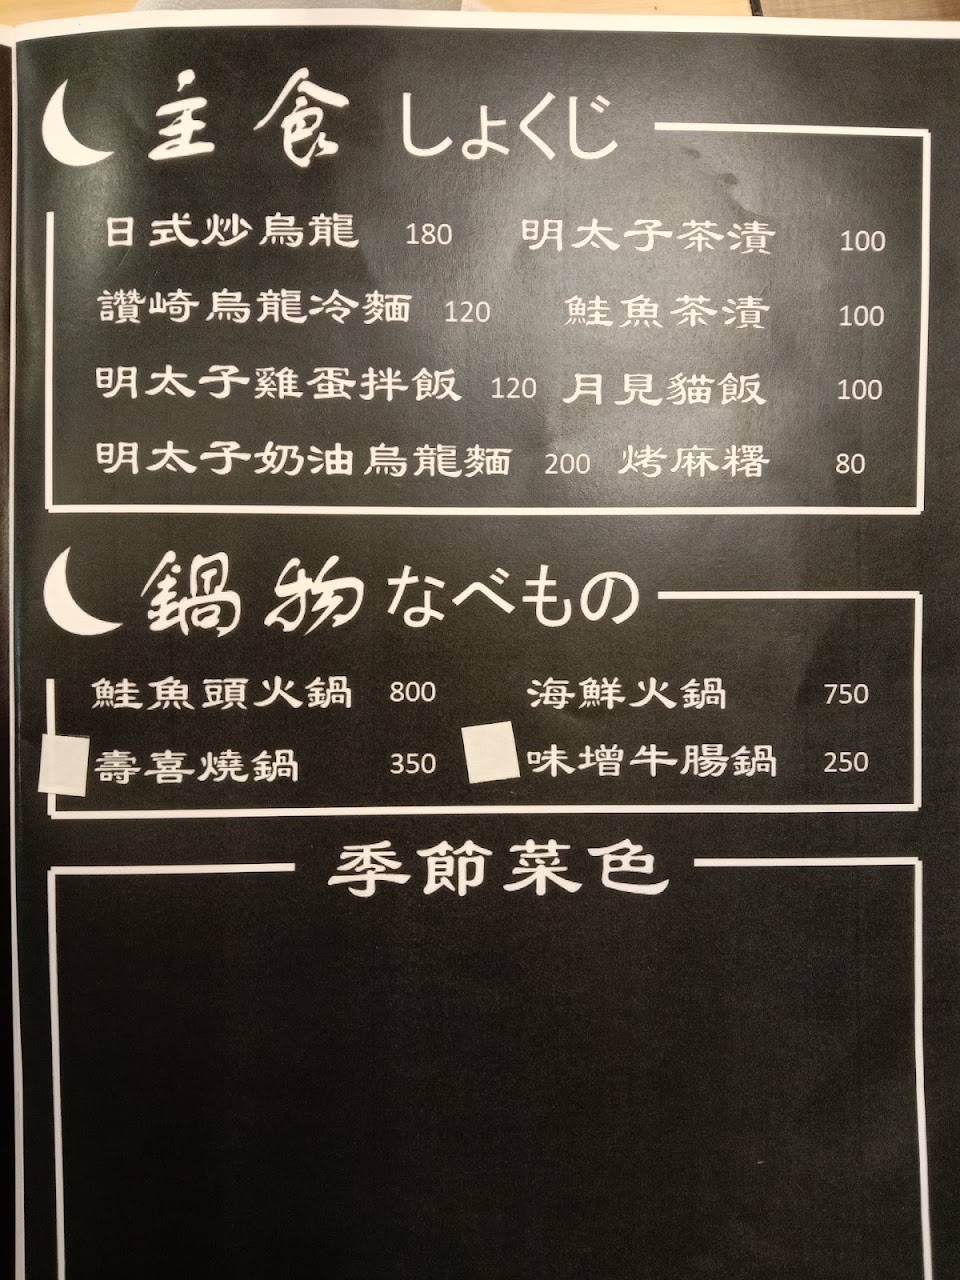 主食 しょくじ
日式炒烏龍 180 明太子茶漬 100
讚崎烏龍冷麵 120 鮭魚茶漬 100
明太子雞蛋拌飯 120 月見貓飯 100
明太子奶油烏龍麵 200 烤麻糬 80
鍋物 なべもの
鮭魚頭火鍋 800 海鮮火鍋 750
壽喜燒鍋 350 味增牛腸鍋 250
季節菜色